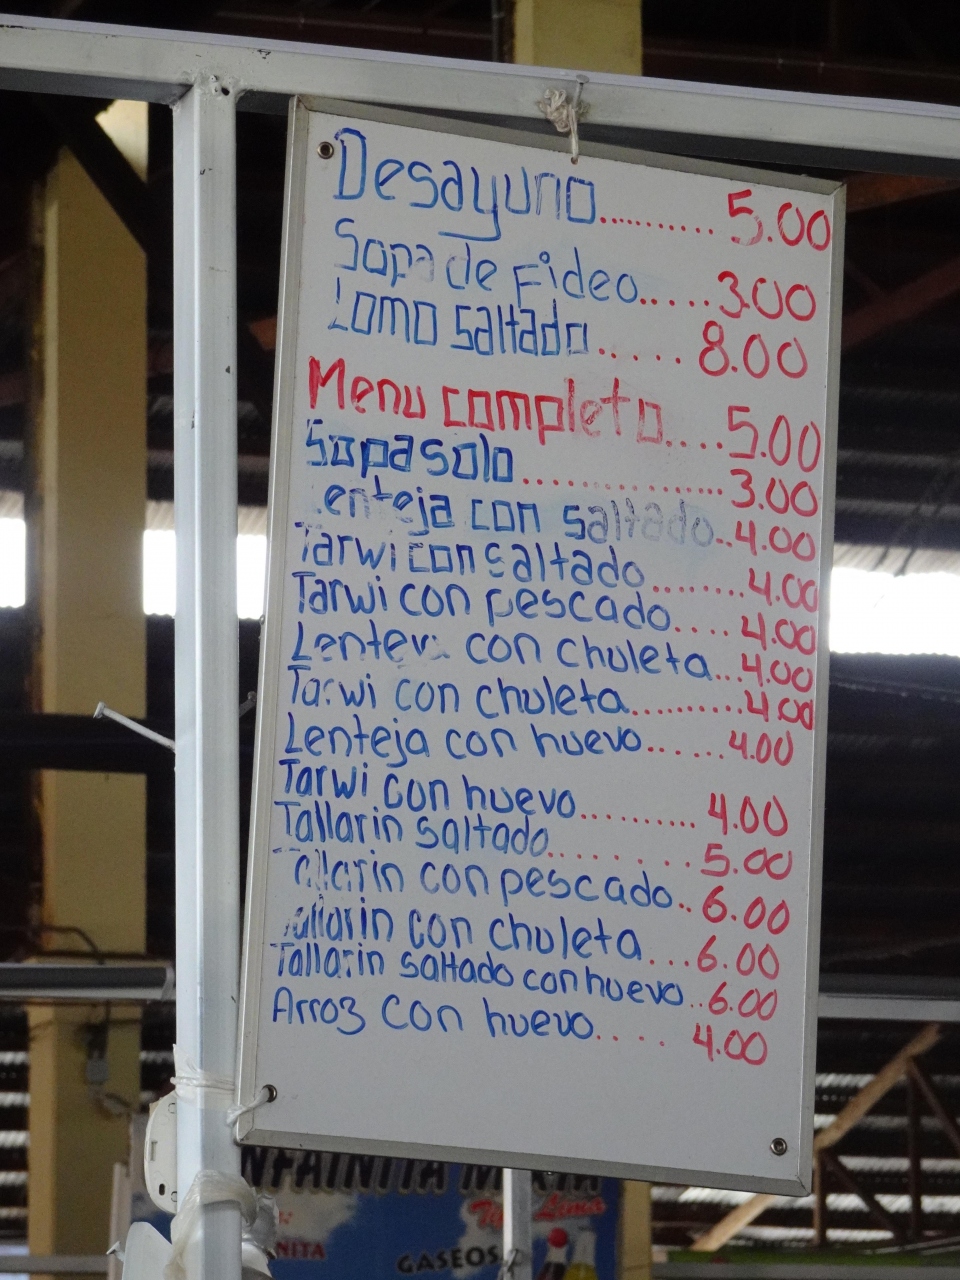 Desayuno.......... 5.00
Sopa de Fideo.....3.00
Lomo saltado..... 8.00
Menu completo....5.00
Sopa solo................3.00
Lenteja con saltado..4.00
Tarwi con saltado........4.00
Tarwi con pescado....4.00
con chuleta...4.00
Tarwi con chuleta..........4.00
Lenteja con huevo......4.00
Tarwi con huevo.......... 4.00
Tallarin saltado.........5.00
Tallarin con pescado..6.00
Tallarin con chuleta...6.00
Tallarin saltado con huevo..6.00
Arroz con huevo.... 4.00
Lima
NITA
GASEOS